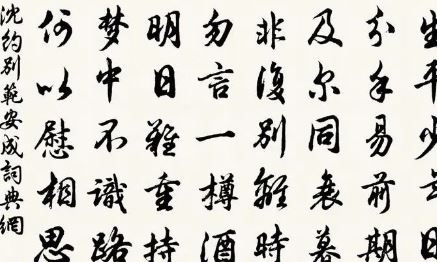 生平少年日
分手易前期
及尔同衰暮
非復別離時
勿言一樽酒
明日難重持
梦中不識路
何以慰相思
沈約別範安成詞典網